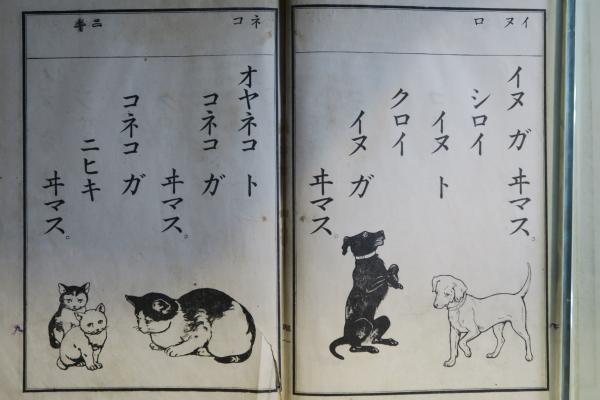 イヌ ロ
イヌ ガ ヰマス。
シロイ
イヌ ト
クロイ
イヌ ガ
ヰマス。
ネコ
オヤネコ ト
コネコ ガ
ヰマス。
コネコ ガ
ニヒキ
ヰマス。